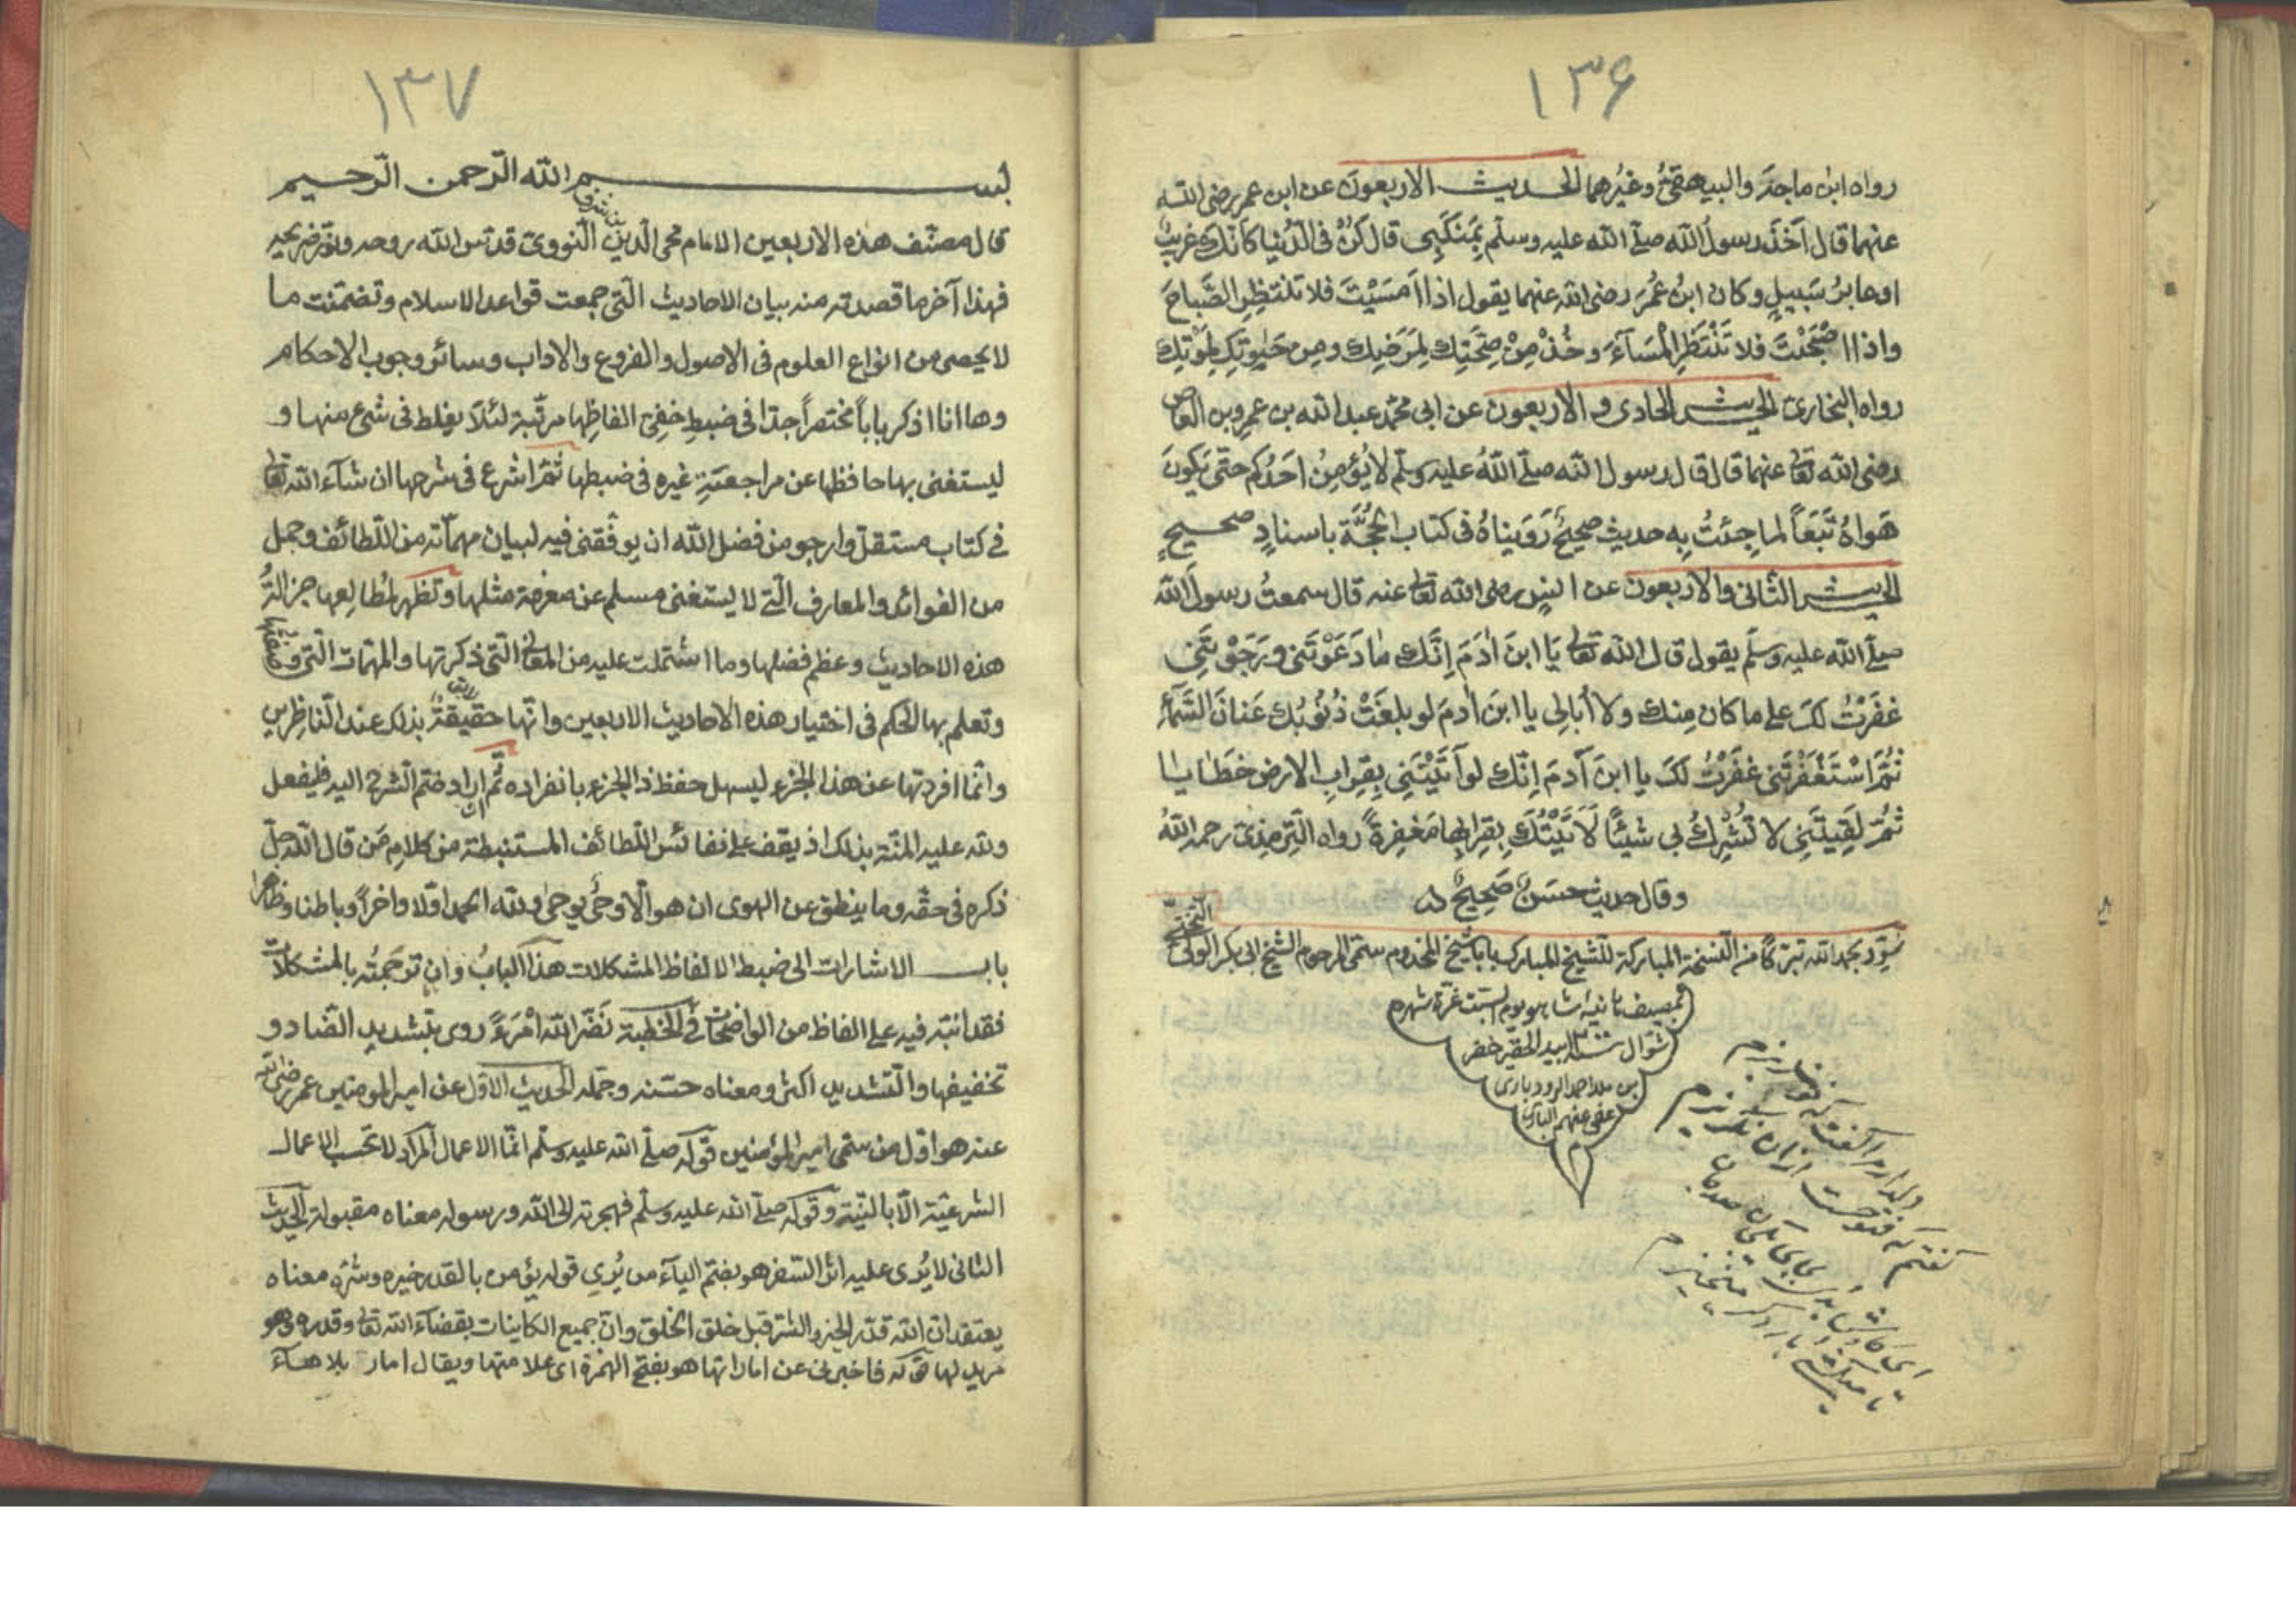 ١٣۶
رواه ابن ماجة والبيهقيُّ وغيرُهما الحديث الاربعون عن ابن عمر رضى الله
عنهما قال اَخَذَ رسولُ الله صلّى الله عليه وسلّم بِمَنْكَبِى قال كُنْ فى الدُّنيا كاَنّكَ غريبٌ
او عابرُ سَبيلٍ وكان ابنُ عُمَرَ رضى الله عنهما يقول اذا اَمسَيْتَ فلا تنتظِرِ الصَّباحَ
واذا اصْبَحْتَ فلا تَنْتَظِرِ المْسَآءَ وخُذْ مِنْ صِحَّتِكَ لِمَرَضِكَ ومِن حَيٰوتِكَ لِمَوْتِكَ
رواه البخارىّ الحديث الحادى والاربعون عن ابى محمّد عبد الله بن عمرِو بن العاص
رضى الله تعا عنهما قال قال رسول الله صلّى اللهُ عليه وسلّم لا يُؤمِنُ اَحَدُكم حتّى يَكونَ
هَواهُ تَبَعاً لما جِئتُ بِه حديث صحيحٌ رَوَيناهُ فى كتاب الحُجَّة باسنادٍ صحيحٍ
الحديث الثانى والاربعون عن انسٍ رضى الله تعا عنه قال سمعتُ رسولَ الله
صلّى الله عليه وسلّم يقول قال الله تعا يَا ابنَ اٰدَمَ اِنَّك مٰا دَعَوْتَنى ورَجَوْتَنِى
غفَرْتُ لكَ على ما كان مِنك ولا اُبالِى يا ابنَ اٰدمَ لو بلغَتْ ذُنُوبُك عَنانَ السَّمآءِ
ثُمَّ اسْتَغْفَرْتَنى غفَرْتُ لكَ يا ابنَ آدمَ اِنّك لو آتَيْتَنِى بِقِرابِ الارضِ خطَايا
ثُمَّ لَقِيتَنِى لا تُشرِكُ بى شَيئًا لَآتَيْتُكَ بِقِرابِها مَغفِرةً رواه التِرمذىّ رحمه اللهُ
وقال حديث حسَنٌ صَحِيحٌ
سُوّد بحمد الله تبرّكاً من النسخة المباركة للشيخ المبارك بابا شيخ المخدوم سمّى المرحوم الشيخ ابى بكر الولىّ
يوم السبت غرّة شهره
شوّال سنة بيد الحقير خضر
ابن ملا احمد الرودبارى
عفى عنهم البارى
م
١٣٧
بسم الله الرّحمن الرّحيم
قال مصنّف هذه الاربعين الامام محى الدين بن شرف النّووىّ قدّس الله روحه ونوّر ضريحه
فهذا آخر ما قصدته من بيان الاحاديث الّتى جمعت قواعد الاسلام وتضمّنت ما
لا يحصى من انواع العلوم فى الاصول والفروع والاداب وسائر وجوب الاحكام
وها انا اذكر باباً مختصراً جدّا فى ضبط خفِىّ الفاظِها مرتّبة لئلا يغلط فى شئ منها و
ليستغنى بها حافظها عن مراجعةِ غيره فى ضبطها ثُمَّ اشرع فى شرحها ان شآء الله تعا
فى كتاب مستقلّ وارجو من فضل الله ان يوفّقنى فيه لبيان مهمّاته من اللطائف وجمل
من الفوائد والمعارف الّتى لا يستغنى مسلم عن معرفة مثلها وتظهر لمُطالِعها جزالةُ
هذه الاحاديث وعظم فضلها وما اشتملت عليه من المعانى الّتى ذكرتها والمهمّات الّتى وصفتها
وتعلم بها الحكم فى اختيار هذه الاحاديث الاربعين وانّها حقيقةٌ بذلك عند النّاظِرين
وانّما افردتها عن هذا الجزء ليسهل حفظ ذا الجزء بانفراده ثُمّ ان اراد ضمّ الشرح اليه فليفعل
ولله عليه المنّة بذلك اذ يقف على نفائس اللطائف المستنبطة من كلام مَن قال الله جلّ
ذكره فى حقّه وما ينطق عن الهوى ان هو الّا وحىٌ يوحىٰ ولله الحمد اوّلا واخراً وباطنا وظاهرا
باب الاشارات الى ضبط الالفاظ المشكلات هذا البابُ وان ترجمتُه بالمشكلات
فقد انبّه فيه على الفاظ من الواضحات فى الخطبة نَضّر الله امْرَءً روى بتشديد الضاد و
تخفيفها والتشديد اكثر ومعناه حسّنه وجمّله الحديث الاوّل عن امير المؤمنين عمر رضى الله
عنه هو اوّل من سمّى امير المؤمنين قوله صلّى الله عليه وسلّم انّما الاعمال المراد لا تحسب الاعمال
الشرعيّة الّا بالنيّة وقوله صلّى الله عليه وسلّم فهجرته الى الله ورسوله معناه مقبولة الحديث
الثانى لا يُرى عليه اثر السفر هو بضمّ اليآء من يُرى قوله يؤمن بالقدر خيره وشرّه معناه
يعتقد ان الله قدّر الخير والشرّ قبل خلق الخلق وانّ جميع الكاينات بقضآء الله تعا وقدره وهو
مريد لها قوله فاخبرنى عن اماراتها هو بفتح الهمزة اى علامتها ويقال امار بلا هآء